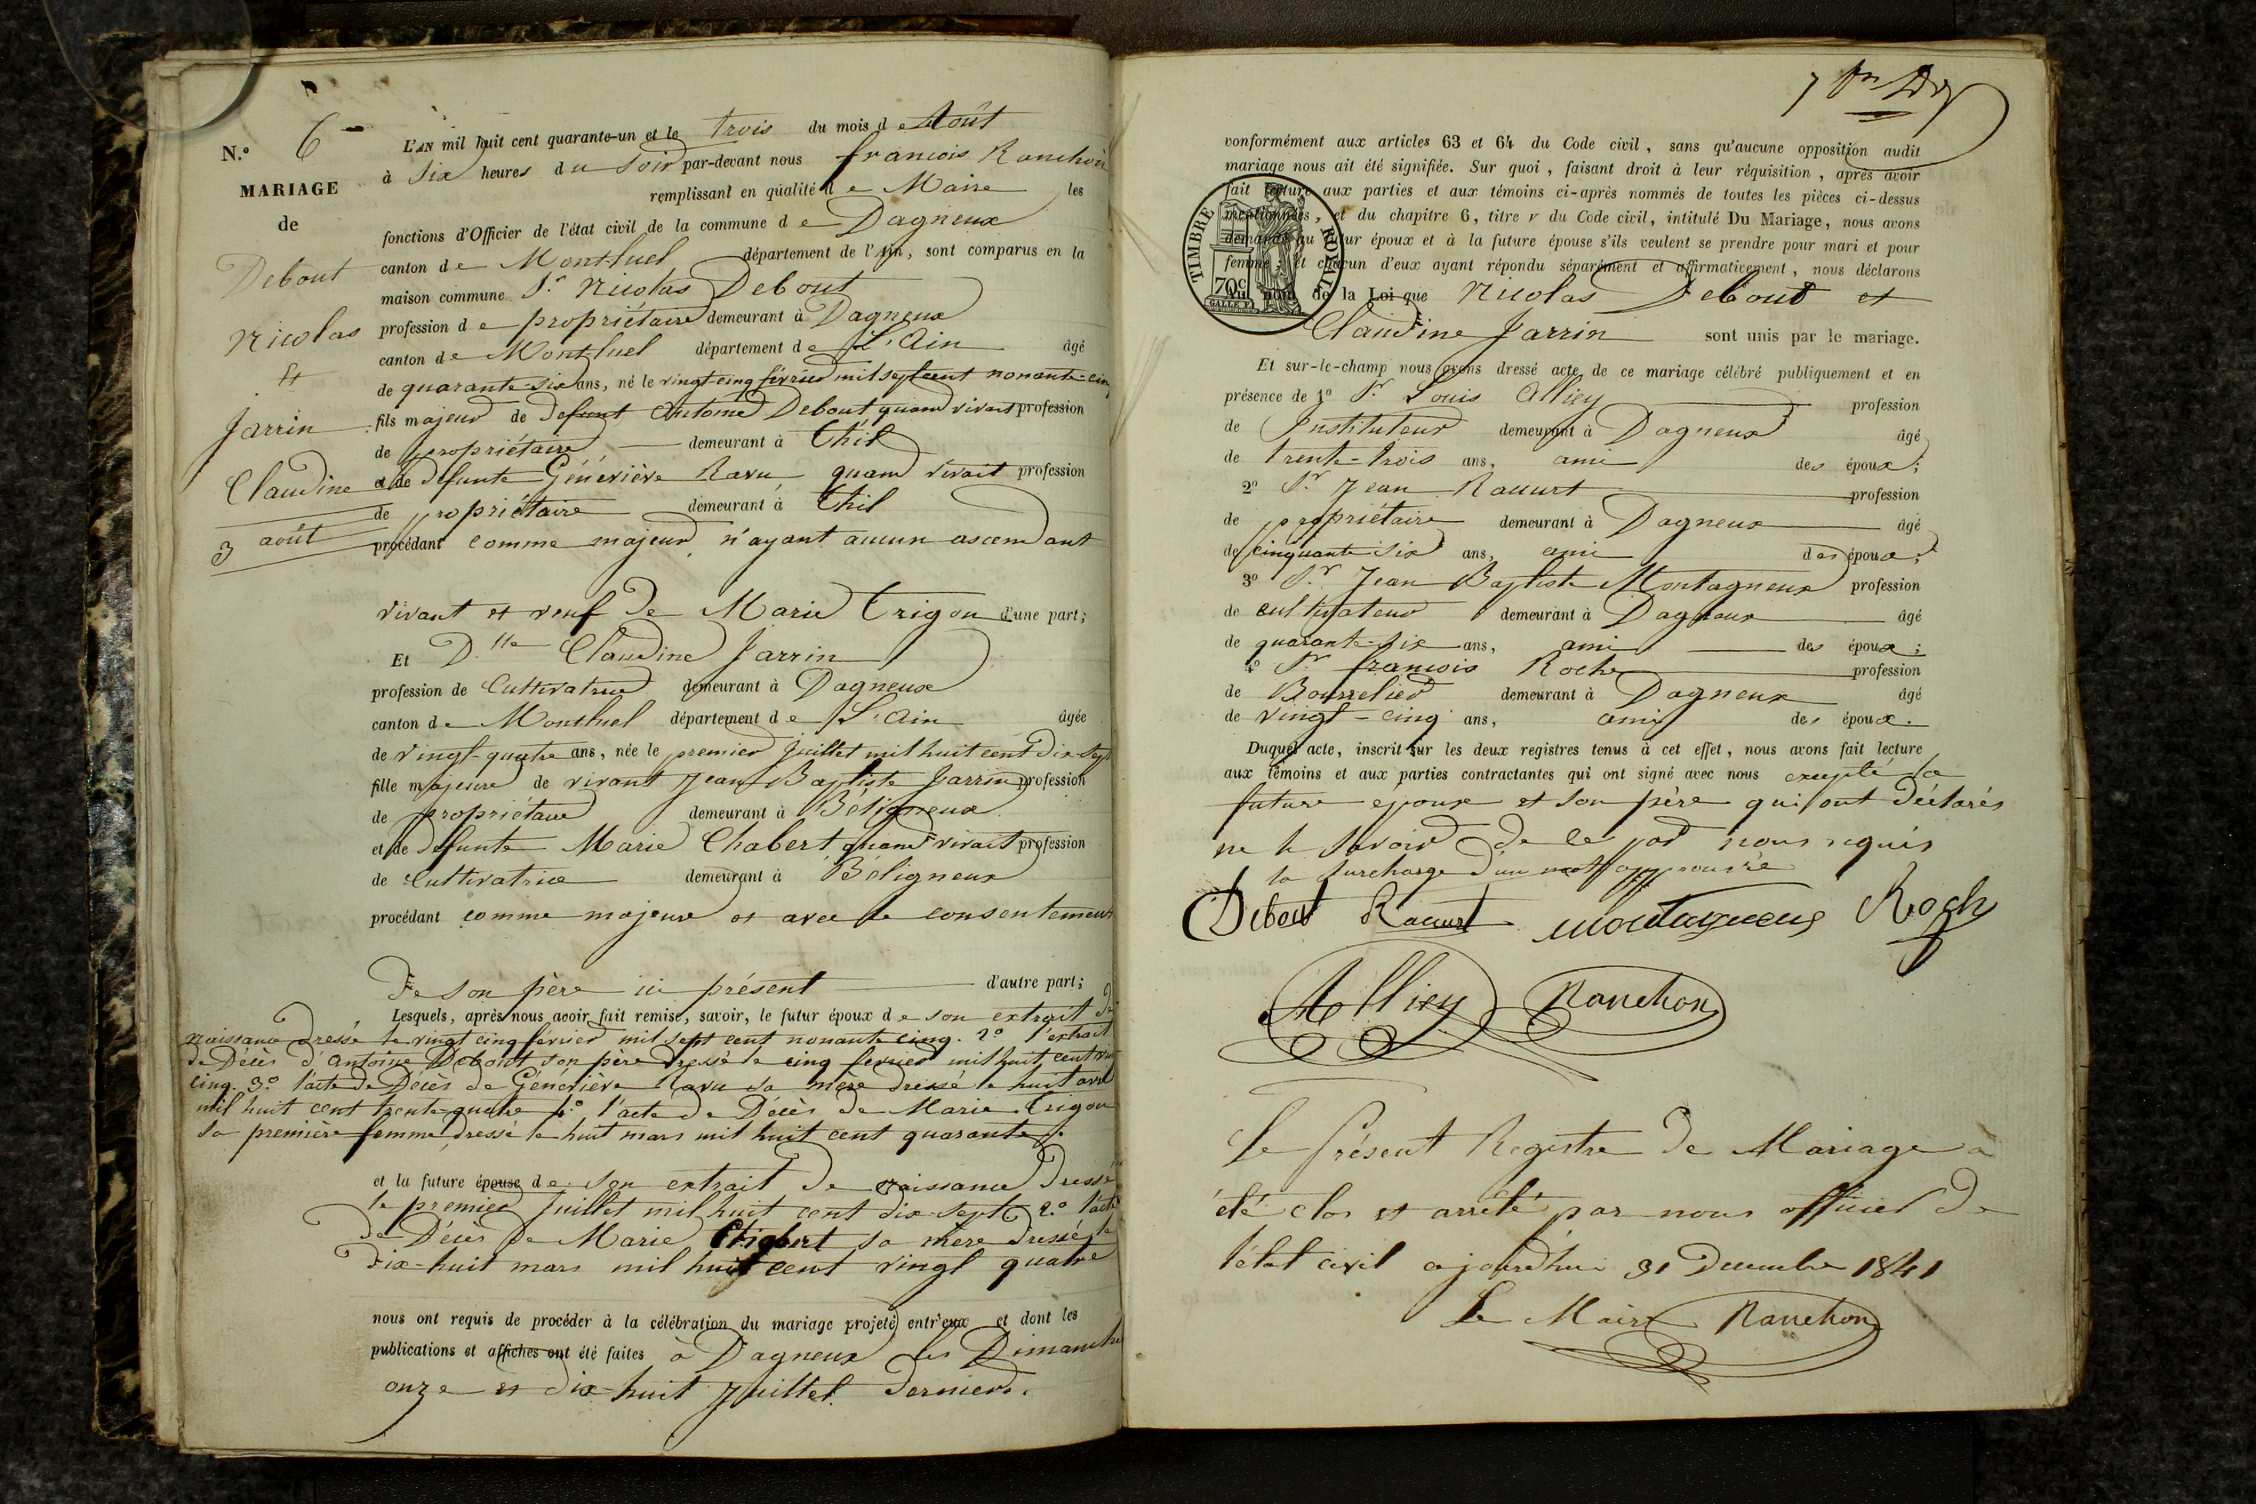 N.º 6
MARIAGE
de
Debout
Nicolas
et
Jarrin
Claudine
3 août
L'AN mil huit cent quarante-un et le trois du mois de Août
à six heures du soir par-devant nous françois Ranchon
remplissant en qualité de Maire les
fonctions d'Officier de l'état civil de la commune de Dagneux
canton de Montluel département de l'Ain, sont comparus en la
maison commune Sr Nicolas Debout
profession de propriétaire demeurant à Dagneux
canton de Montluel département de L'Ain âgé
de quarante-six ans, né le vingt-cinq février mil sept cent nonante-cinq
fils majeur de defunt Antoine Debout quand vivait profession
de propriétaire demeurant à Thil
et de defunte Géneviève Ravu quand vivait profession
de propriétaire demeurant à Thil
procédant comme majeur n'ayant aucun ascendant
vivant et veuf de Marie Trigon d'une part;
Et Dlle Claudine Jarrin
profession de Cultivatrice demeurant à Dagneux
canton de Montluel département de L'Ain âgée
de vingt-quatre ans, née le premier Juillet mil huit cent dix-sept
fille majeure de vivant Jean Baptiste Jarrin profession
de propriétaire demeurant à Béligneux
et de defunte Marie Chabert quand vivait profession
de Cultivatrice demeurant à Béligneux
procédant comme majeure et avec le consentement
de son père ici présent d'autre part;
Lesquels, après nous avoir fait remise, savoir, le futur époux de son extrait de
naissance dressé le vingt cinq février mil sept cent nonante cinq. 2º l'extrait
de Décès d'Antoine Debout son père dressé le cinq fevrier mil huit cent
cinq. 3º l'acte de Décès de Géneviève Ravu sa mère dressé le huit avril
mil huit cent trente-quatre 4º l'acte de Décès de Marie Trigon
sa première femme dressé le huit mars mil huit cent quarante.
et la future épouse de son extrait de naissance dressé
le premier Juillet mil huit cent dix-sept 2º l'acte
de Décès de Marie Chabert sa mère dressé le
dix-huit mars mil huit cent vingt quatre
nous ont requis de procéder à la célébration du mariage projeté entr'eux et dont les
publications et affiches ont été faites à Dagneux les Dimanches
onze et dix-huit Juillet derniers.
conformément aux articles 63 et 64 du Code civil, sans qu'aucune opposition audit
mariage nous ait été signifiée. Sur quoi, faisant droit à leur réquisition, après avoir
fait lecture aux parties et aux témoins ci-après nommés de toutes les pièces ci-dessus
mentionnées, et du chapitre 6, titre v du Code civil, intitulé Du Mariage, nous avons
demandé au futur époux et à la future épouse s'ils veulent se prendre pour mari et pour
femme; et chacun d'eux ayant répondu séparément et affirmativement, nous déclarons
au nom de la Loi que Nicolas Debout et
Claudine Jarrin sont unis par le mariage.
TIMBRE ROYAL
70c
Et sur-le-champ nous avons dressé acte de ce mariage célébré publiquement et en
présence de 1º Sr Louis Alliey profession
de Instituteur demeurant à Dagneux âgé
de trente-trois ans, ami des époux;
2º Sr Jean Racurt profession
de propriétaire demeurant à Dagneux âgé
de cinquante-six ans, ami des époux;
3º Sr Jean Baptiste Montagneux profession
de cultivateur demeurant à Dagneux âgé
de quarante-six ans, ami des époux;
4º Sr françois Roche profession
de Bourrelier demeurant à Dagneux âgé
de vingt-cinq ans, ami des époux.
Duquel acte, inscrit sur les deux registres tenus à cet effet, nous avons fait lecture
aux témoins et aux parties contractantes qui ont signé avec nous excepté la
future epouse et son père qui ont déclarés
ne le savoir de ce par nous requis
la surcharge d'un mot approuvée
Debout Racurt Montagneux Roche
Alliey Ranchon
Le Présent Registre de Mariage a
été clos et arrêté par nous officier de
l'état civil aujourd'hui 31 Decembre 1841
Le Maire Ranchon